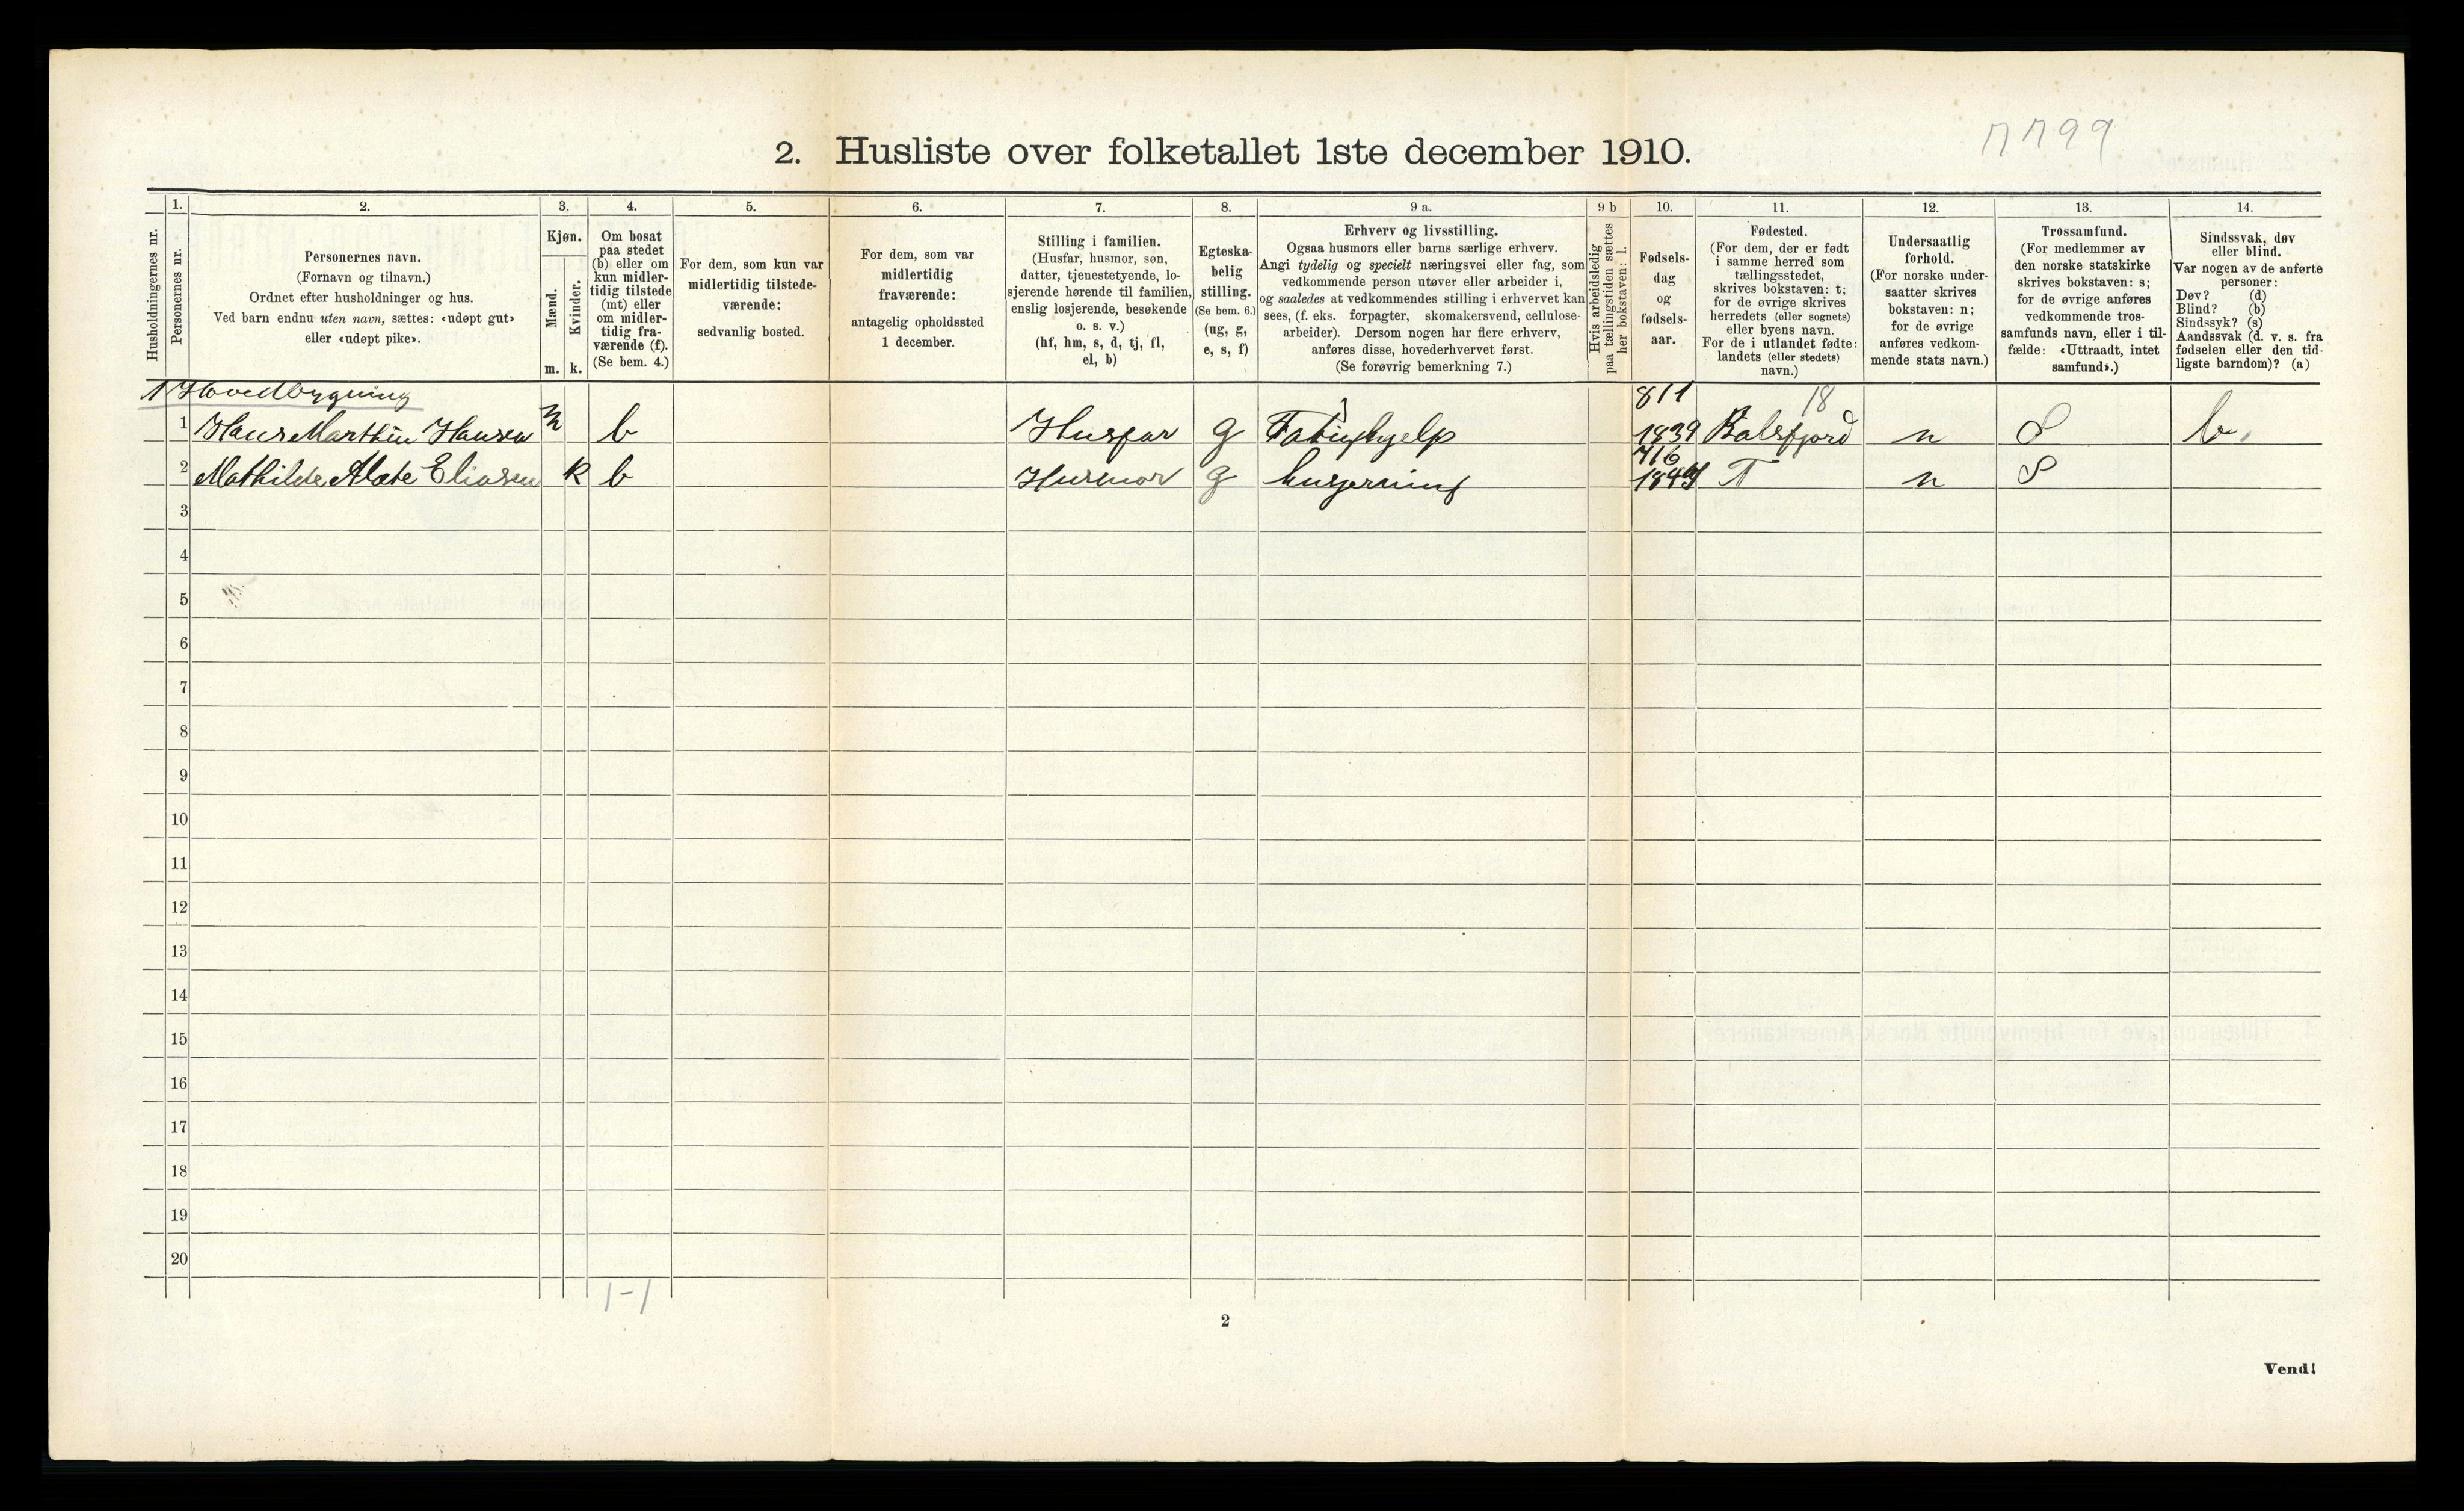 7799
2. Husliste over folketallet 1ste december 1910.
Husholdningernes nr.
1.
Personernes nr.
2.
Personernes navn.
(Fornavn og tilnavn.)
Ordnet efter husholdninger og hus.
Ved barn endnu uten navn, sættes: «udøpt gut»
eller «udøpt pike».
3.
Kjøn.
Mænd.
Kvinder.
m. k.
4.
Om bosat
paa stedet
(b) eller om
kun midler-
tidig tilstede
(mt) eller
om midler-
tidig fra-
værende (f).
(Se bem. 4.)
5.
For dem, som kun var
midlertidig tilstede-
værende:
sedvanlig bosted.
6.
For dem, som var
midlertidig
fraværende:
antagelig opholdssted
1 december.
7.
Stilling i familien.
(Husfar, husmor, søn,
datter, tjenestetyende, lo-
sjerende hørende til familien,
enslig losjerende, besøkende
o. s. v.)
(hf, hm, s, d, tj, fl,
el, b)
8.
Egteska-
belig
stilling.
(Se bem. 6.)
(ug, g,
e, s, f)
9 a.
Erhverv og livsstilling.
Ogsaa husmors eller barns særlige erhverv.
Angi tydelig og specielt næringsvei eller fag, som
vedkommende person utøver eller arbeider i,
og saaledes at vedkommendes stilling i erhvervet kan
sees, (f. eks. forpagter, skomakersvend, cellulose-
arbeider). Dersom nogen har flere erhverv,
anføres disse, hovederhvervet først.
(Se forøvrig bemerkning 7.)
9 b
Hvis arbeidsledig
paa tællingstiden sættes
her bokstaven: l.
10.
Fødsels-
dag
og
fødsels-
aar.
11.
Fødested.
(For dem, der er født
i samme herred som
tællingsstedet,
skrives bokstaven: t;
for de øvrige skrives
herredets (eller sognets)
eller byens navn.
For de i utlandet fødte:
landets (eller stedets)
navn.)
12.
Undersaatlig
forhold.
(For norske under-
saatter skrives
bokstaven: n;
for de øvrige
anføres vedkom-
mende stats navn.)
13.
Trossamfund.
(For medlemmer av
den norske statskirke
skrives bokstaven: s;
for de øvrige anføres
vedkommende tros-
samfunds navn, eller i til-
fælde: «Uttraadt, intet
samfund».)
14.
Sindssvak, døv
eller blind.
Var nogen av de anførte
personer:
Døv? (d)
Blind? (b)
Sindssyk? (s)
Aandssvak (d. v. s. fra
fødselen eller den tid-
ligste barndom)? (a)
1 Hovedbygning 8/1 18
1 Hans Marthin Hansen m b Husfar g Fatighjelp 1839 Balsfjord n S b.
7/6
2 Mathilde Alate Eliasen k b Husmor g husgerning T n S
3
4
5
6
7
8
9
10
11
12
13
14
15
16
17
18
19
20
1-1
2
Vend!